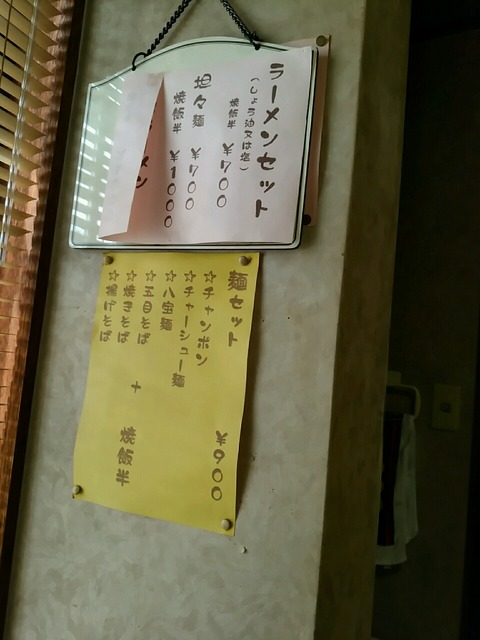 ラーメンセット
(しょう油又は塩)
焼飯半 ¥700
坦々麺 ¥700
焼飯半 ¥1000
メン
麺セット ¥900
☆チャンポン
☆チャーシュー麺
☆八宝麺
☆五目そば
☆焼きそば + 焼飯半
☆揚げそば